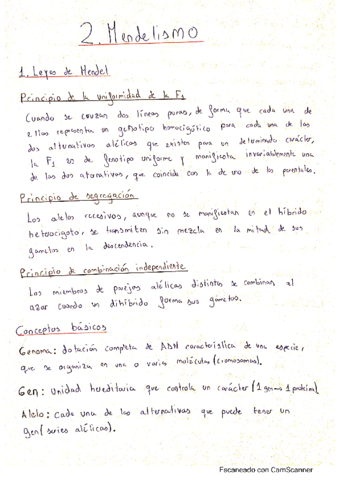 2. Mendelismo
1. Leyes de Mendel
Principio de la uniformidad de la F1
Cuando se cruzan dos líneas puras, de forma que cada una de
ellas representa un genotipo homocigótico para cada una de las
dos alternativas alélicas que existen para un determinado carácter,
la F1 es de genotipo uniforme y manifiesta invariablemente una
de las dos alternativas, que coincide con la de uno de los parentales.
Principio de segregación
Los alelos recesivos, aunque no se manifiestan en el híbrido
heterocigoto, se transmiten sin mezcla en la mitad de sus
gametos en la descendencia.
Principio de combinación independiente
Los miembros de parejas alélicas distintas se combinan al
azar cuando un dihíbrido forma sus gametos.
Conceptos básicos
Genoma: dotación completa de ADN característica de una especie,
que se organiza en una o varias moléculas (cromosomas).
Gen: Unidad hereditaria que controla un carácter (1 gen 1 proteína)
Alelo: Cada una de las alternativas que puede tener un
gen (series alélicas).
Escaneado con CamScanner